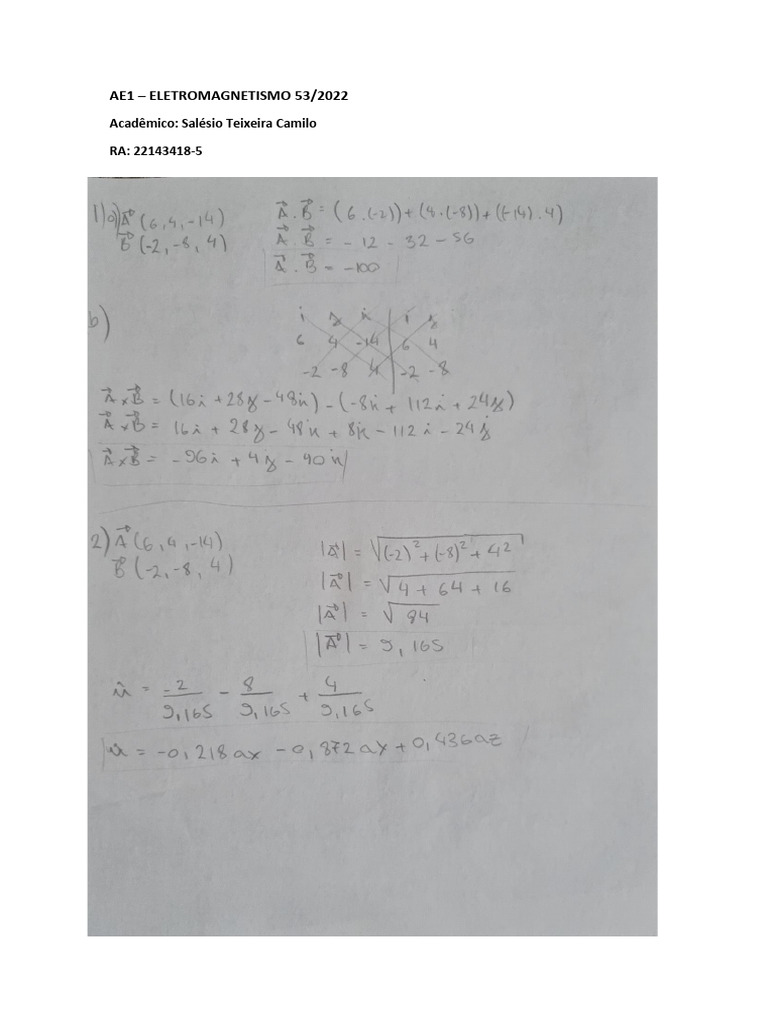 AE1 – ELETROMAGNETISMO 53/2022
Acadêmico: Salésio Teixeira Camilo
RA: 22143418-5
1) a) A⃗ (6, 4, -14)
B⃗ (-2, -8, 4)
A⃗ . B⃗ = (6 . (-2)) + (4 . (-8)) + ((-14) . 4)
A⃗ . B⃗ = - 12 - 32 - 56
A⃗ . B⃗ = -100
b)
i j k | i j
6 4 -14 | 6 4
-2 -8 4 | -2 -8
A⃗ x B⃗ = (16i + 28j - 48k) - (-8k + 112i + 24j)
A⃗ x B⃗ = 16i + 28j - 48k + 8k - 112i - 24j
A⃗ x B⃗ = -96i + 4j - 40k
2) A⃗ (6, 4, -14)
B⃗ (-2, -8, 4)
|A⃗| = √(-2)² + (-8)² + 4²
|A⃗| = √4 + 64 + 16
|A⃗| = √84
|A⃗| = 9,165
û = -2/9,165 - 8/9,165 + 4/9,165
û = -0,218ax - 0,872ax + 0,436az